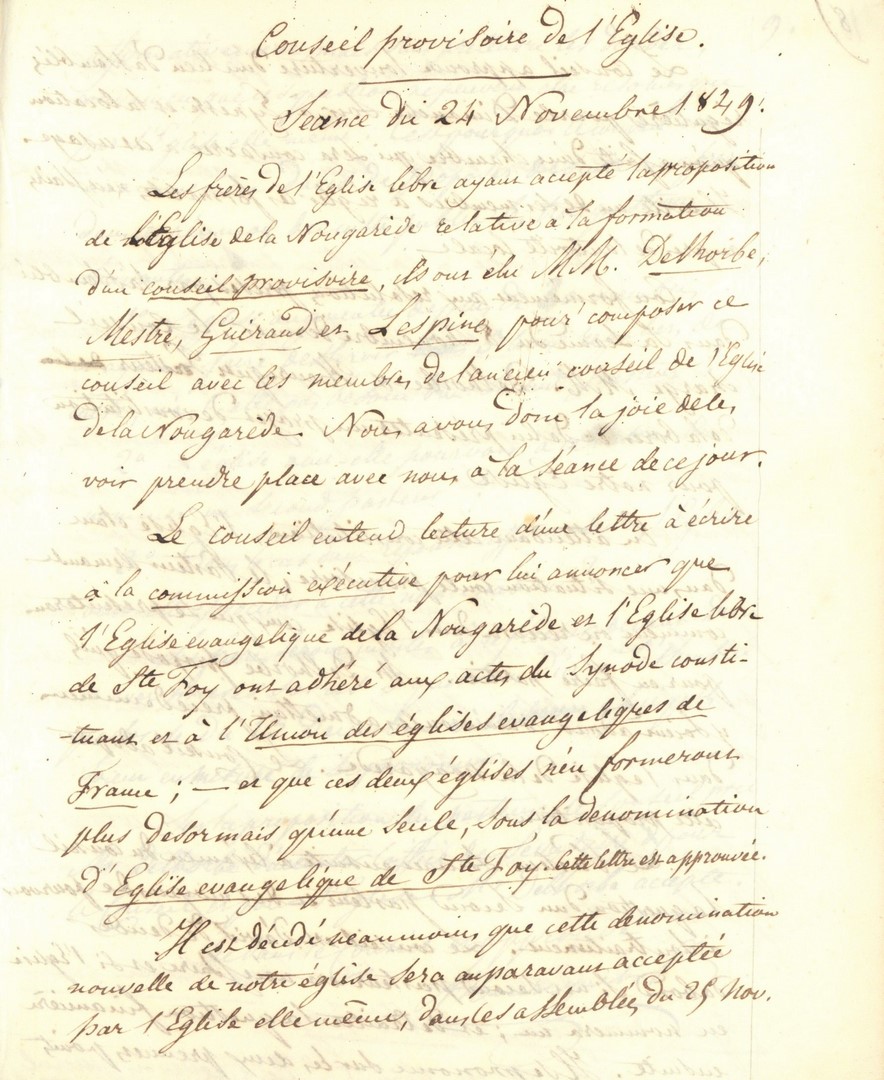 Conseil provisoire de l'Eglise.
Séance du 24 Novembre 1849.
Les frères de l'Eglise libre ayant accepté la proposition
de l'Eglise de la Nougarède relative à la formation
d'un conseil provisoire, ils ont élu MM. Delhorbe,
Mestre, Guiraud et Lespine pour composer ce
conseil avec les membres de l'ancien conseil de l'Eglise
de la Nougarède. Nous avons donc la joie de les
voir prendre place avec nous à la séance de ce jour.
Le conseil entend lecture d'une lettre à écrire
à la commission exécutive pour lui annoncer que
l'Eglise evangelique de la Nougarède et l'Eglise libre
de Ste Foy ont adhéré aux actes du Synode consti-
-tuant et à l'Union des églises evangeliques de
France ; — et que ces deux églises n'en formeront
plus desormais qu'une seule, sous la denomination
d'Eglise evangelique de Ste Foy. Cette lettre est approuvée.
Il est décidé neanmoins que cette denomination
nouvelle de notre église sera auparavant acceptée
par l'Eglise elle même, dans les assemblées du 25 Nov.